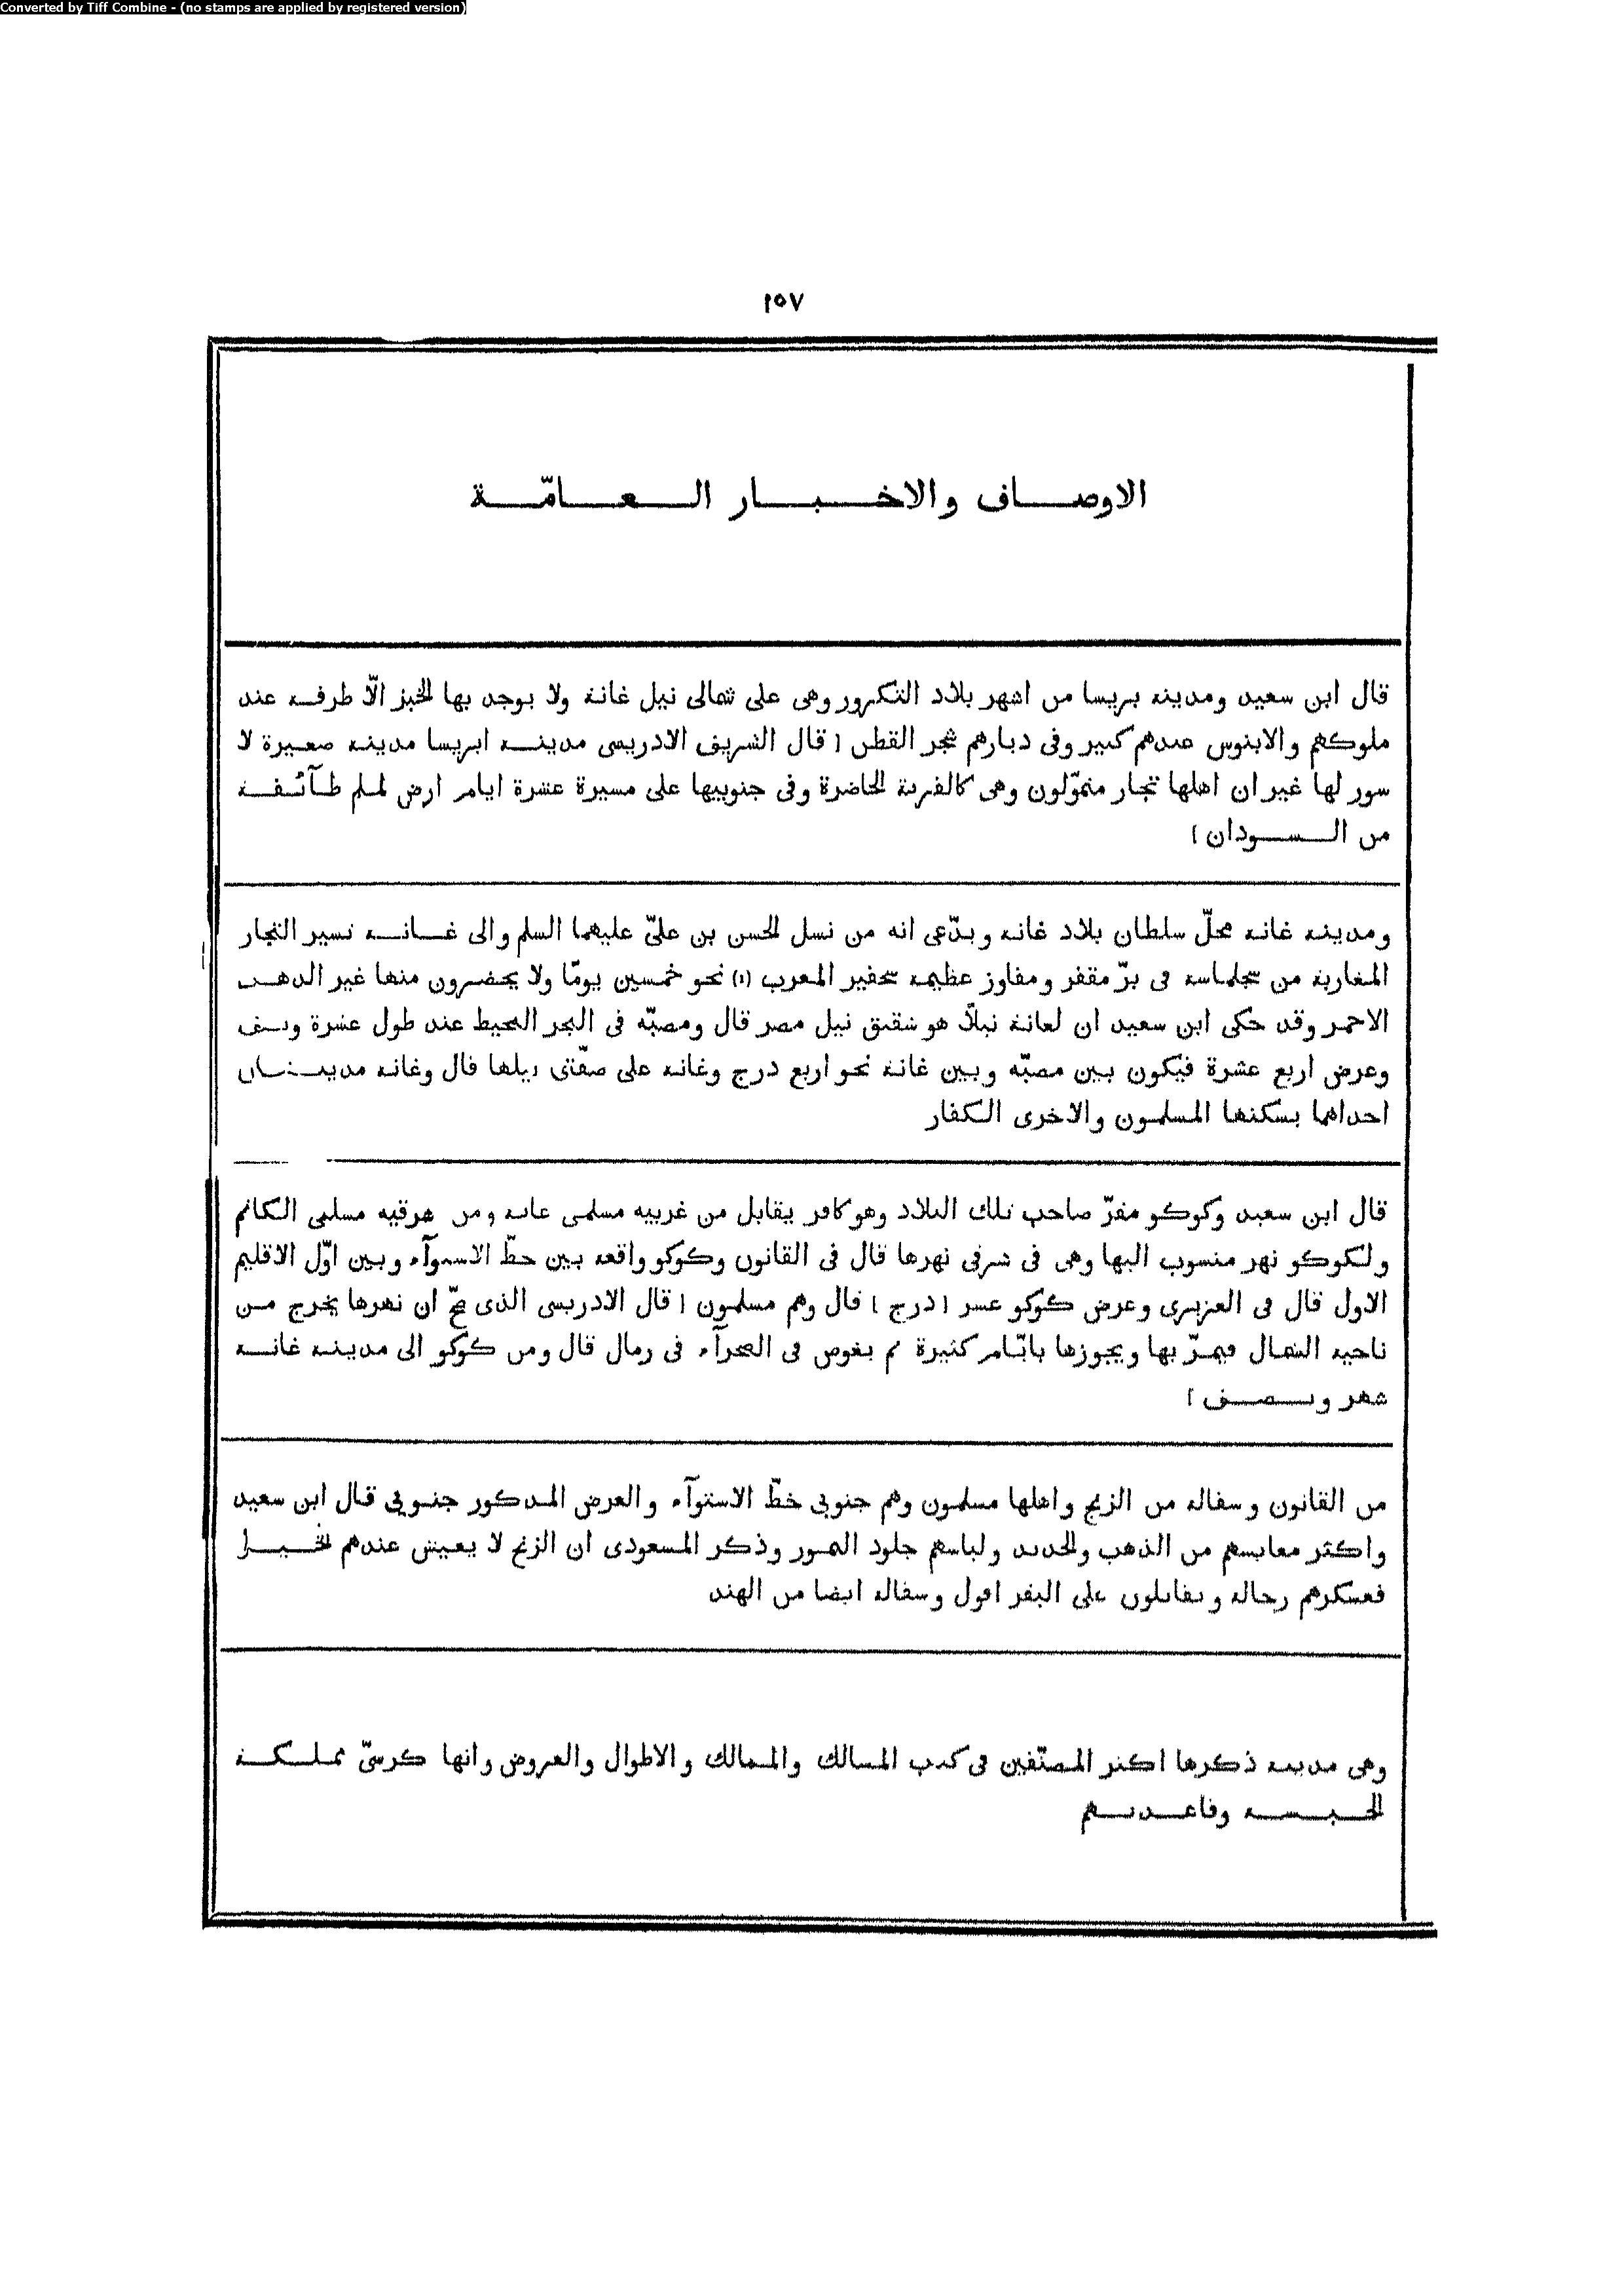 Converted by Tiff Combine - (no stamps are applied by registered version)
١٥٧
الاوصاف والاخبار العامّة
قال ابن سعيد ومدينة بريسا من اشهر بلاد التكرور وهى على شمالى نيل غانة ولا يوجد بها الخبز الّا طرفة عند
ملوكهم والابنوس عندهم كبير وفى ديارهم شجر القطن ( قال الشريف الادريسى مدينة ابريسا مدينة صغيرة لا
سور لها غير ان اهلها تجار متموّلون وهى كالقرية الحاضرة وفى جنوبيها على مسيرة عشرة ايام ارض لملم طآئفة
من السودان )
ومدينة غانة محلّ سلطان بلاد غانة ويدّعى انه من نسل الحسن بن علىّ عليهما السلم والى غانة تسير التجار
المغاربة من سجلماسة فى برّ مقفر ومفاوز عظيمة المغرب (١) نحو خمسين يومًا ولا يحضرون منها غير الذهب
الاحمر وقد حكى ابن سعيد ان لغانة نيلًا هو شقيق نيل مصر قال ومصبّه فى البحر المحيط عند طول عشرة ونصف
وعرض اربع عشرة فيكون بين مصبّه وبين غانة نحو اربع درج وغانة على ضفّتى نيلها قال وغانة مدينتان
احداهما يسكنها المسلمون والاخرى الكفار
قال ابن سعيد وكوكو مقرّ صاحب تلك البلاد وهو كافر يقابل من غربيه مسلمى غانة ومن شرقيه مسلمى الكانم
ولكوكو نهر منسوب اليها وهى فى شرقى نهرها قال فى القانون وكوكو واقعة بين خطّ الاستوآء وبين اوّل الاقليم
الاول قال فى العزيزى وعرض كوكو عشر ( درج ) قال وهم مسلمون ( قال الادريسى الذى صحّ ان نهرها يخرج من
ناحية الشمال فيمرّ بها ويجوزها بايّام كثيرة ثم يغوص فى الصحرآء فى رمال قال ومن كوكو الى مدينة غانة
شهر ونصف )
من القانون وسفالة من الزنج واهلها مسلمون وهم جنوبى خطّ الاستوآء والعرض المذكور جنوبى قال ابن سعيد
واكثر معايشهم من الذهب والحديد ولباسهم جلود النمور وذكر المسعودى ان الزنج لا يعيش عندهم الخيل
فعسكرهم رجالة ويقاتلون على البقر اقول وسفالة ايضا من الهند
وهى مدينة ذكرها اكثر المصنّفين فى كتب المسالك والممالك والاطوال والعروض وانها كرسىّ مملكة
الحبشة وقاعدتهم